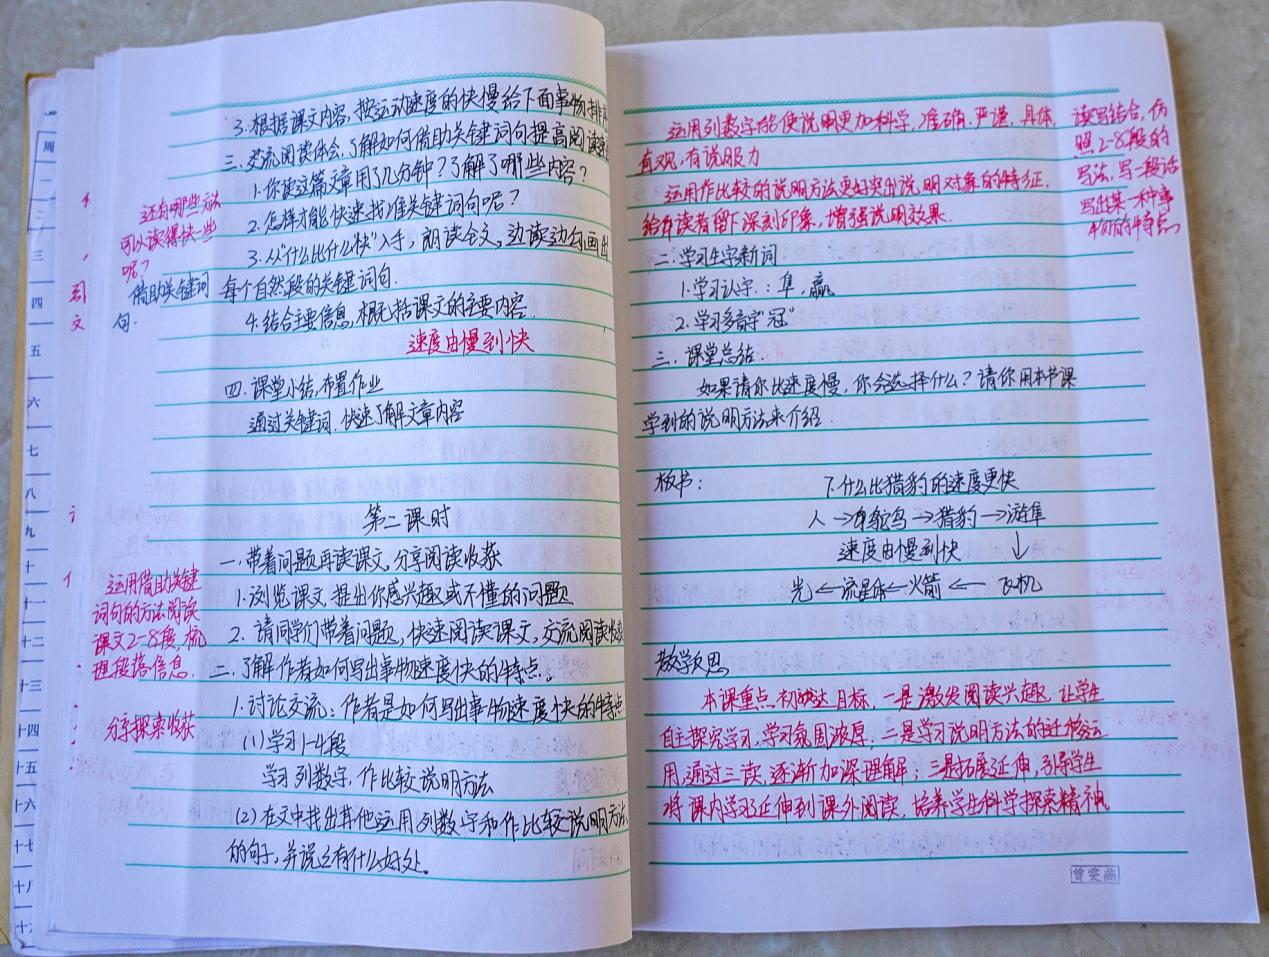 周
一
二
三
四
五
六
七
八
九
十
十一
十二
十三
十四
十五
十六
十七
十八
司
文
还有哪些方法
可以读得快一些
呢？
借助关键词
句.
3.根据课文内容，按运动速度的快慢给下面事物排
三.交流阅读体会，了解如何借助关键词句提高阅读速
1.你读这篇文章用了几分钟？了解了哪些内容？
2.怎样才能快速找准关键词句呢？
3.从“什么比什么快”入手，朗读全文，边读边勾画出
每个自然段的关键词句.
4.结合主要信息，概括课文的主要内容.
速度由慢到快
四.课堂小结，布置作业
通过关键词，快速了解文章内容
第二课时
一.带着问题再读课文，分享阅读收获
1.浏览课文，提出你感兴趣或不懂的问题
2.请同学们带着问题，快速阅读课文，交流阅读收获
二.了解作者如何写出事物速度快的特点。
1.讨论交流：作者是如何写出事物速度快的特点
(1)学习1-4段
学习列数字，作比较说明方法
(2)在文中找出其他运用列数字和作比较说明方法
的句子，并说这有什么好处。
运用借助关键
词句的方法阅读
课文2-8段，梳
理段落信息.
分享探索收获
运用列数字能使说明更加科学，准确.严谨，具体，
直观，有说服力
运用作比较的说明方法更好突出说明对象的特征，
给读者留下深刻印象，增强说明效果.
二.学习生字新词
1.学习认字：隼，赢
2.学习多音字“冠”
三.课堂总结.
如果请你比速度慢，你会选择什么？请你用本节课
学到的说明方法来介绍.
读写结合，仿
照2-8段的
写法，写一段话
写出某一种事
物的特点
板书：
7.什么比猎豹的速度更快
人→鸵鸟→猎豹→游隼
速度由慢到快 ↓
光←流星体←火箭← 飞机
教学反思
本课重点初步达目标，一是激发阅读兴趣，让学生
自主探究学习，学习氛围浓厚，二是学习说明方法的迁移运
用，通过三读，逐渐加深理解；三是拓展延伸，引导学生
将课内学习延伸到课外阅读，培养学生科学探索精神
曾雯燕